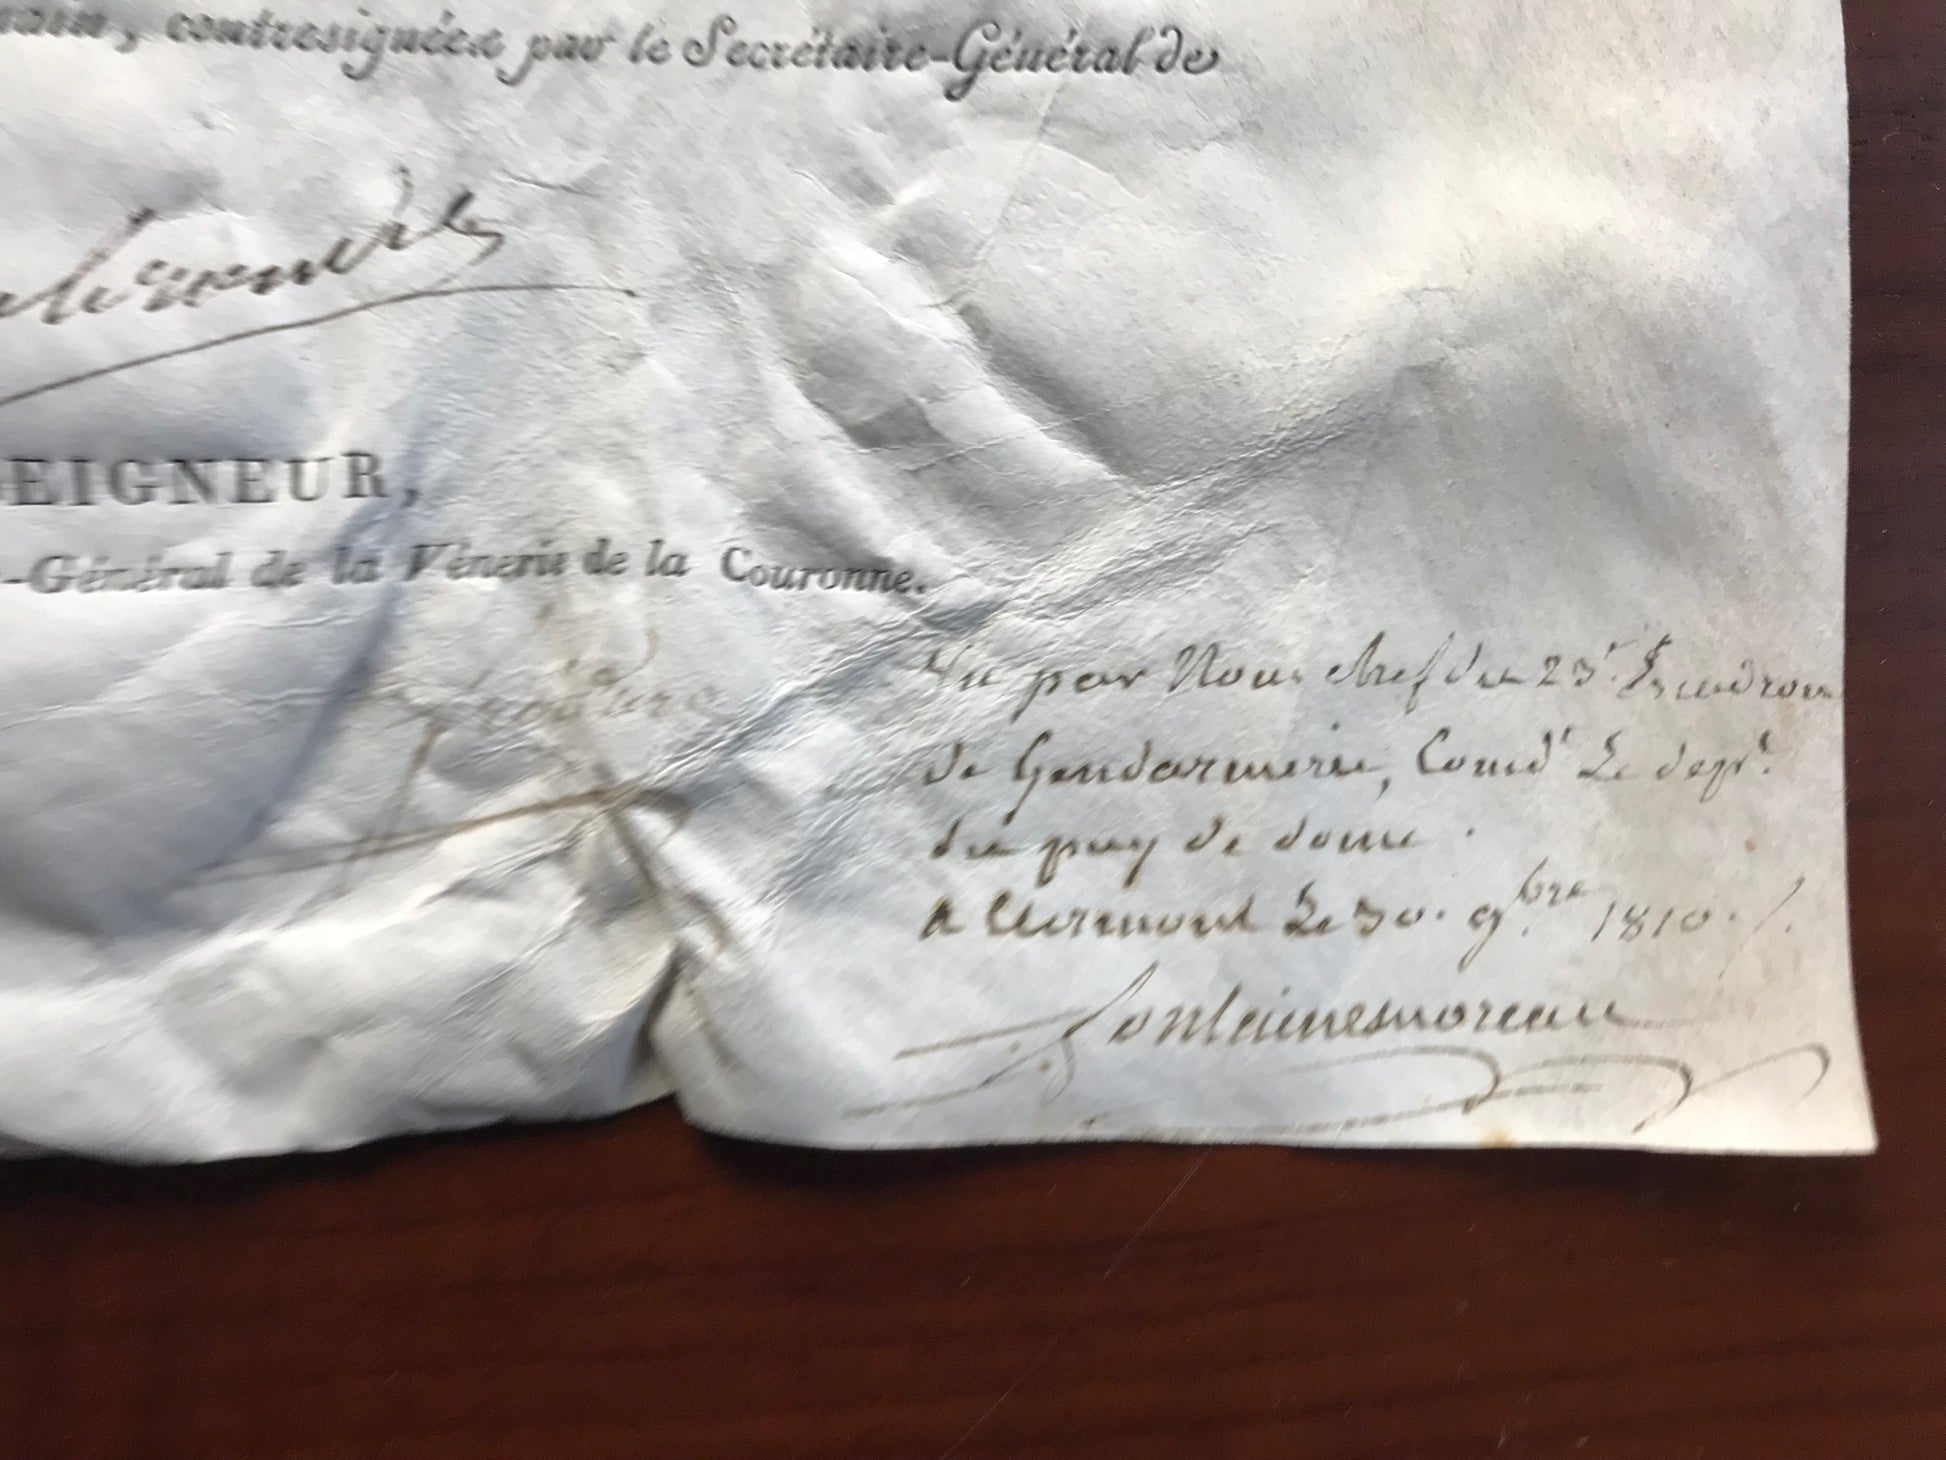 contresignées par le Secrétaire-Général de
EIGNEUR,
-Général de la Vénerie de la Couronne.
Vu par Nous chef du 23e. Escadron
de Gendarmerie, Comdt Le dept.
du puy de dome .
A Clermont Le 30. 9.bre 1810./.
fontainemoreau